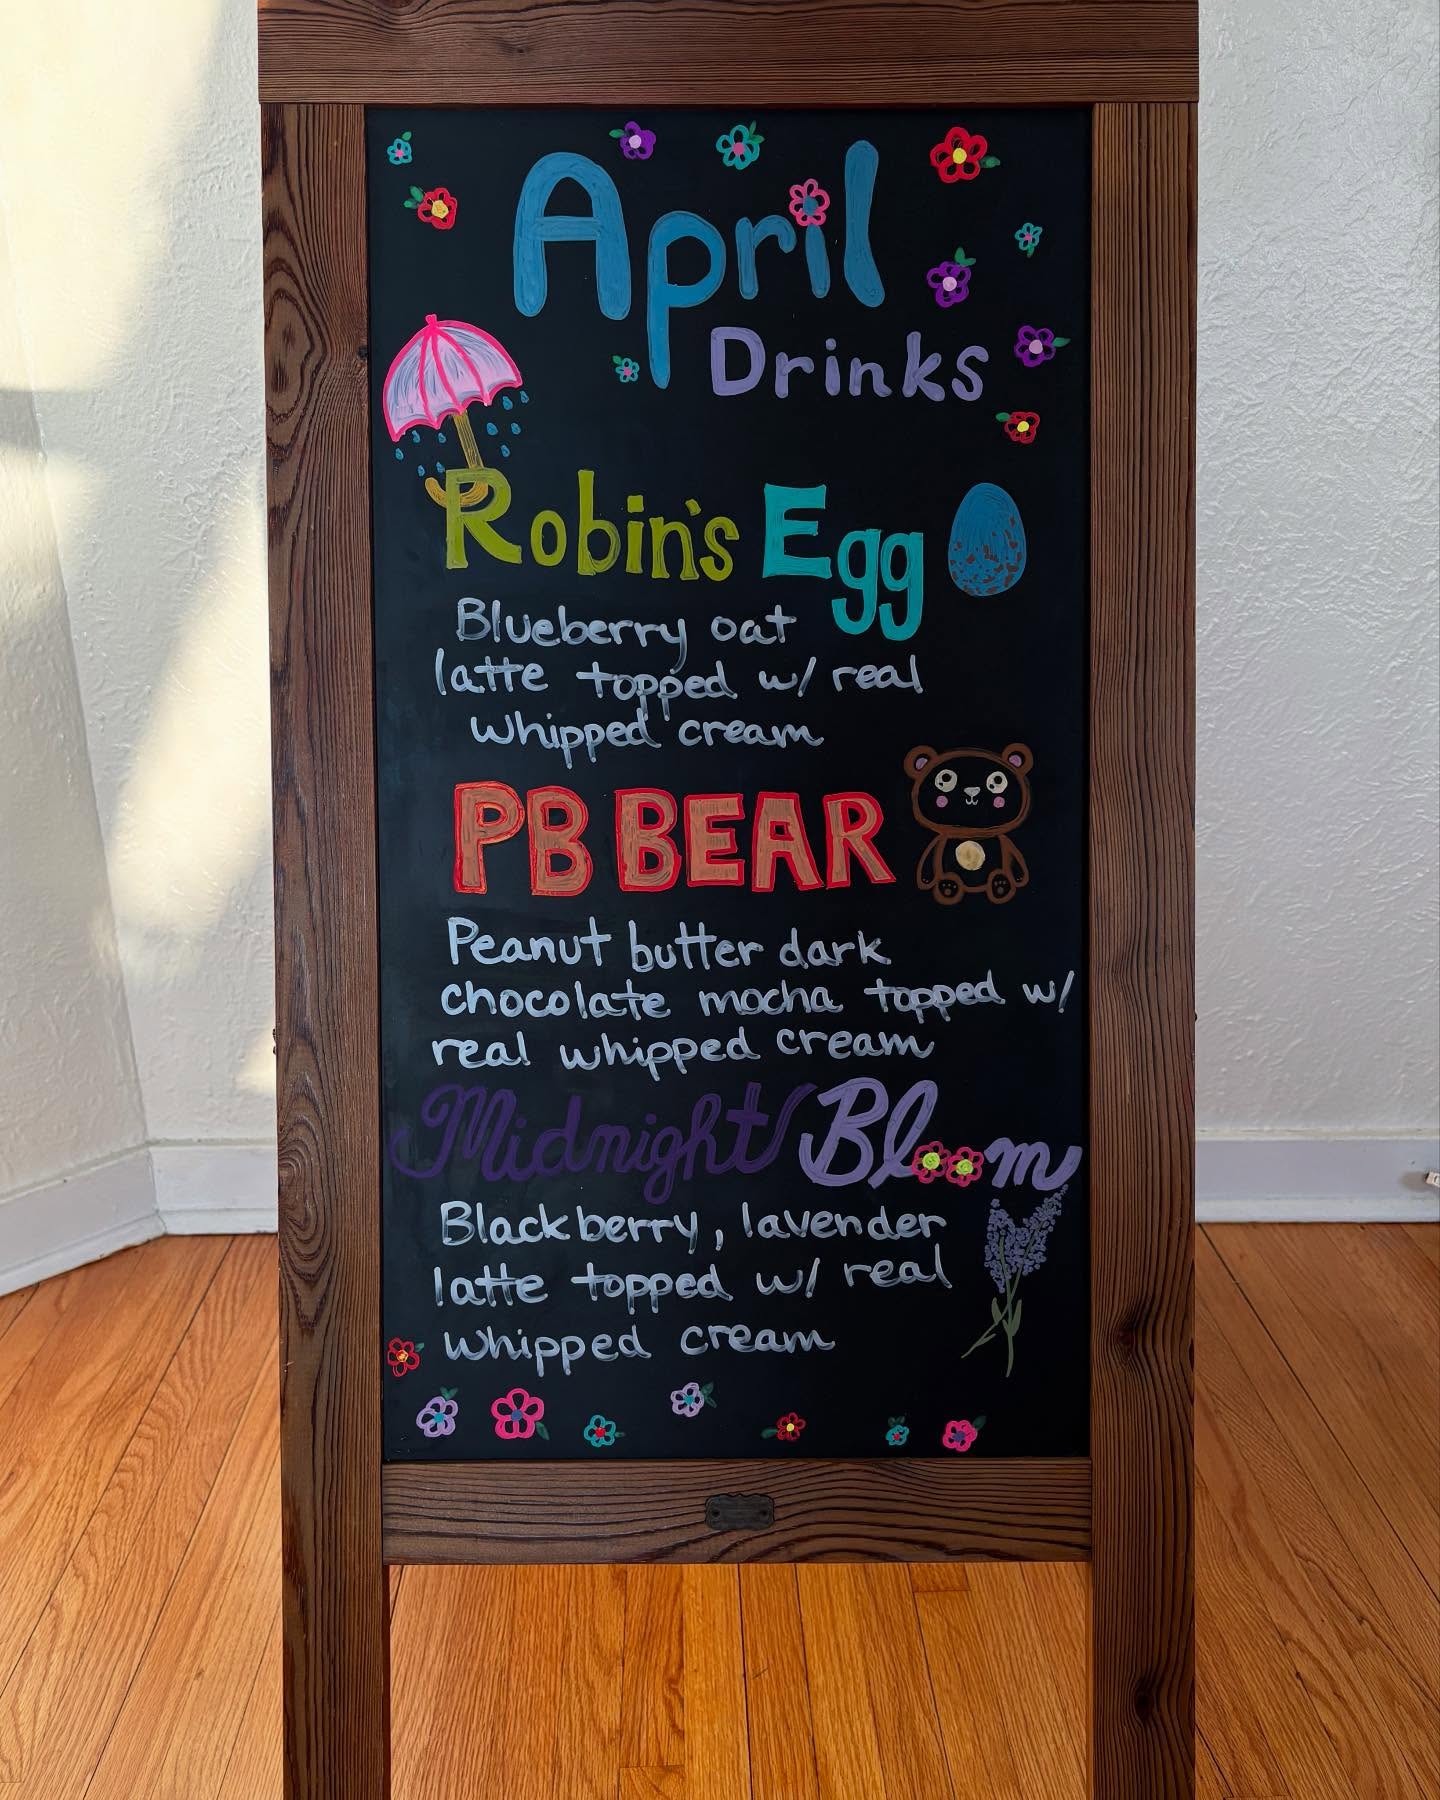 April
Drinks
Robin's Egg
Blueberry oat
latte topped w/ real
whipped cream
PB BEAR
Peanut butter dark
chocolate mocha topped w/
real whipped cream
Midnight Bloom
Blackberry, lavender
latte topped w/ real
whipped cream